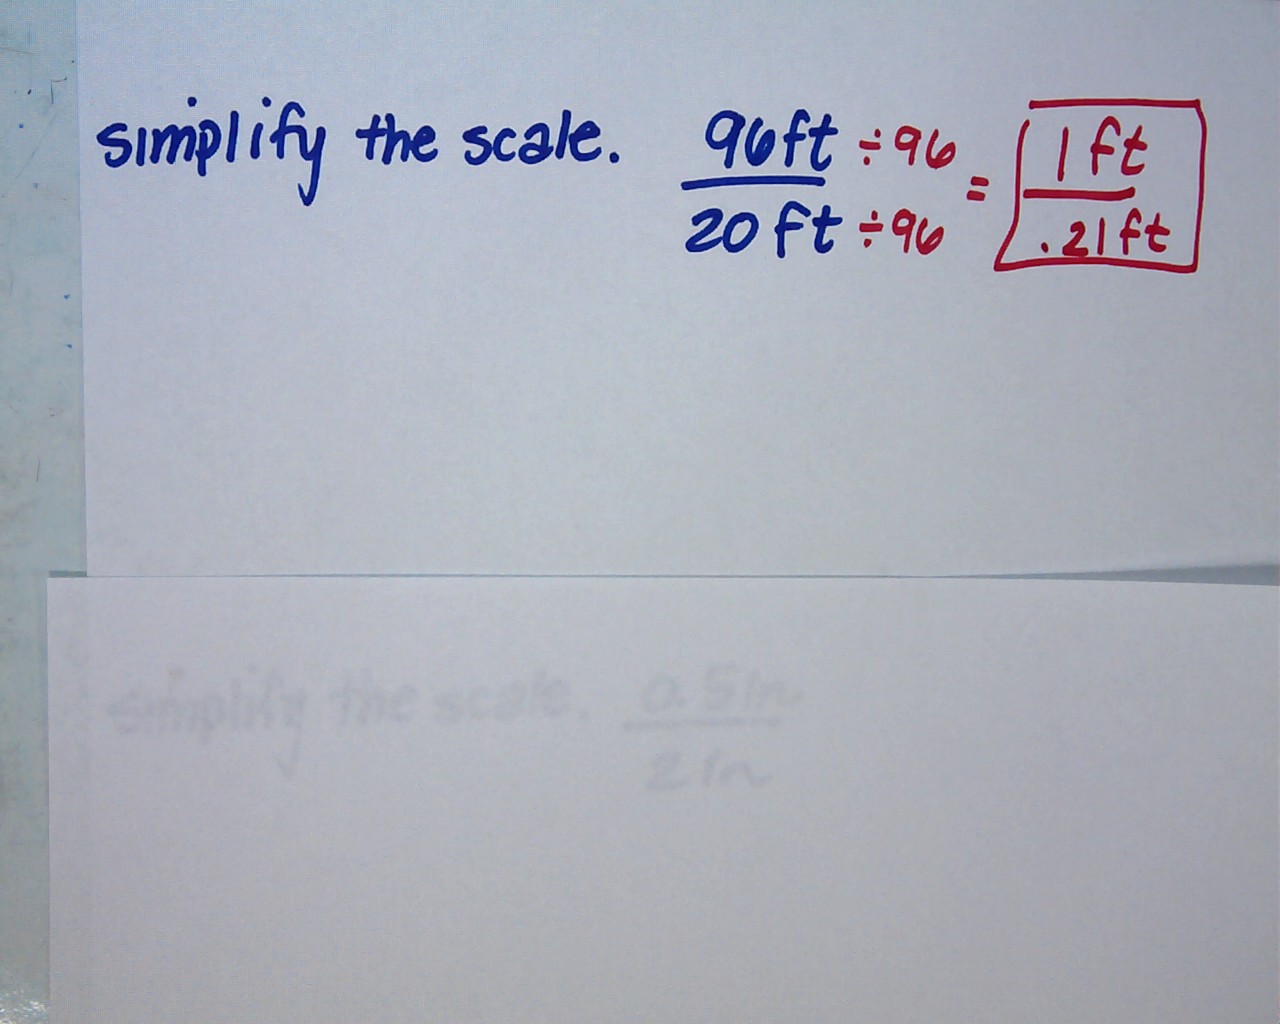 simplify the scale. 96ft ÷96 = 1 ft
20 ft ÷96 .21ft
simplify the scale. 0.5in
2 in